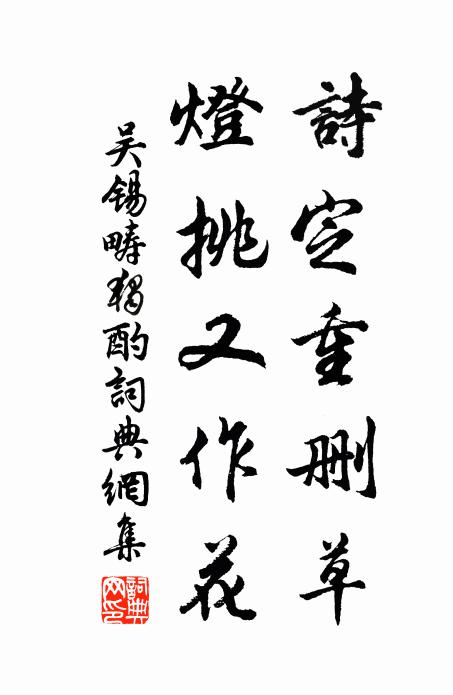 詩定重刪草
燈挑又作花
吴锡畴獨酌詞典網集
詞典網印